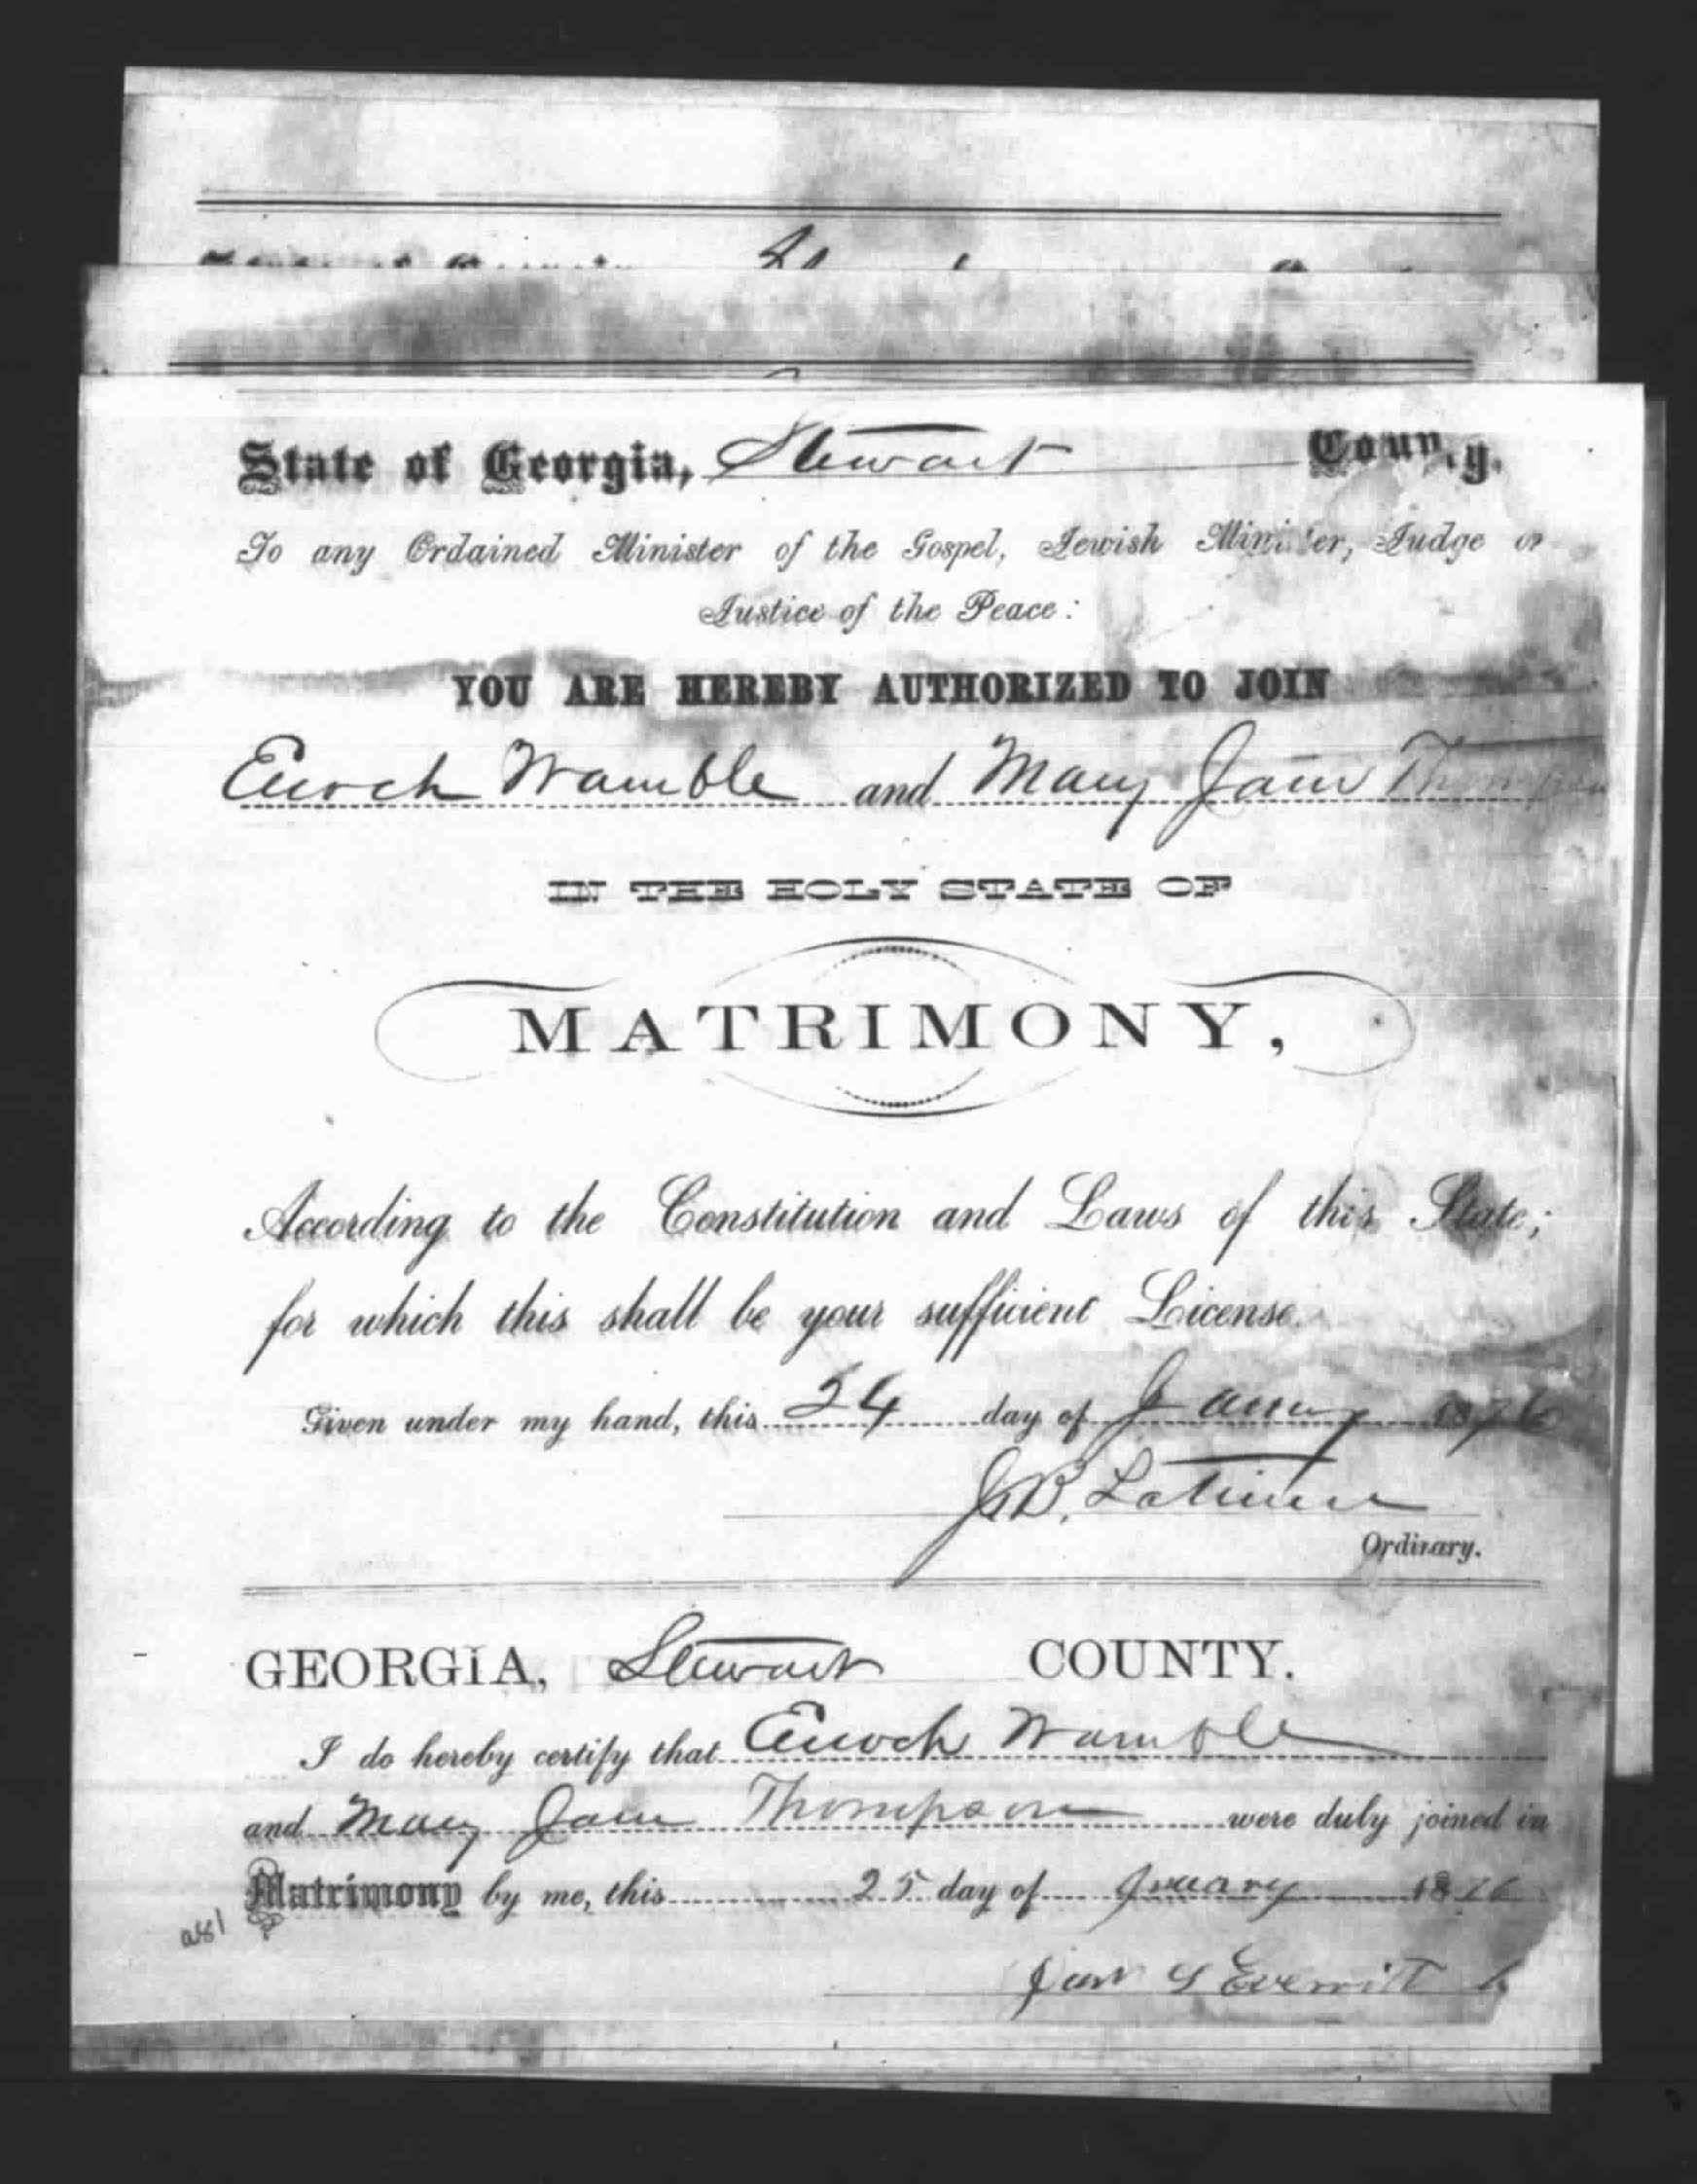 State of Georgia, Stewart County.
To any Ordained Minister of the Gospel, Jewish Minister, Judge or
Justice of the Peace:
YOU ARE HEREBY AUTHORIZED TO JOIN
Enoch Wamble and Mary Jane Thompson
IN THE HOLY STATE OF
MATRIMONY,
According to the Constitution and Laws of this State;
for which this shall be your sufficient License.
Given under my hand, this 24 day of January 1876
J.B. Latimer
Ordinary.
GEORGIA, Stewart COUNTY.
I do hereby certify that Enoch Wamble
and Mary Jane Thompson were duly joined in
Matrimony by me, this 25 day of Jnuary 1876
Everritt